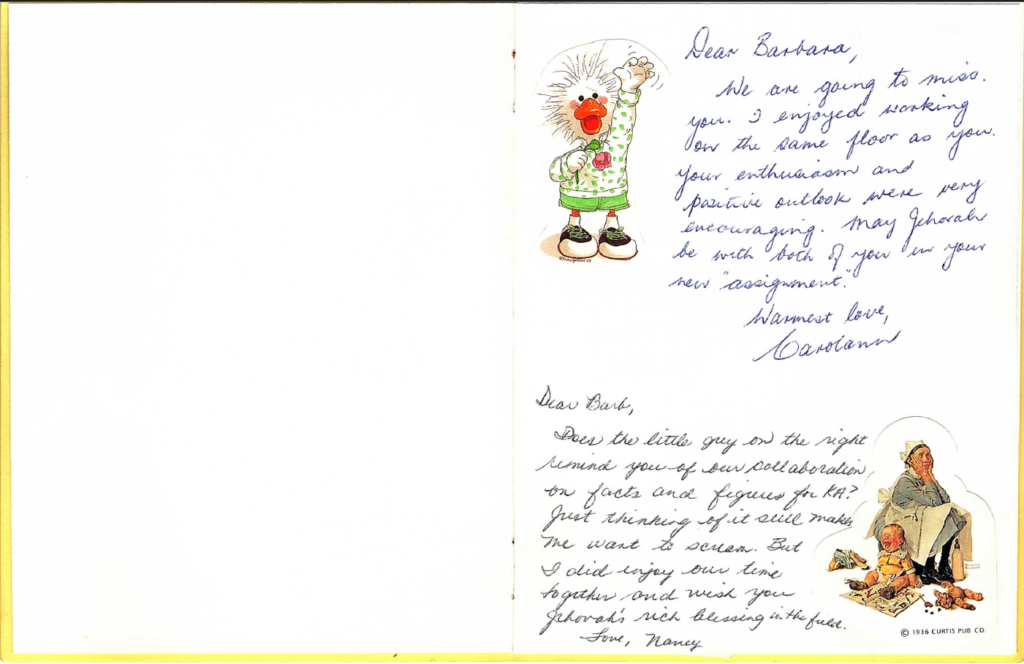 Dear Barbara,
We are going to miss
you. I enjoyed working
on the same floor as you.
Your enthusiasm and
positive outlook were very
encouraging. May Jehovah
be with both of you in your
new "assignment."
Warmest love,
Carolann
Dear Barb,
Does the little guy on the right
remind you of our collaboration
on facts and figures for KA?
Just thinking of it still makes
me want to scream. But
I did enjoy our time
together and wish you
Jehovah's rich blessing in the field.
Love, Nancy
© 1936 CURTIS PUB. CO.